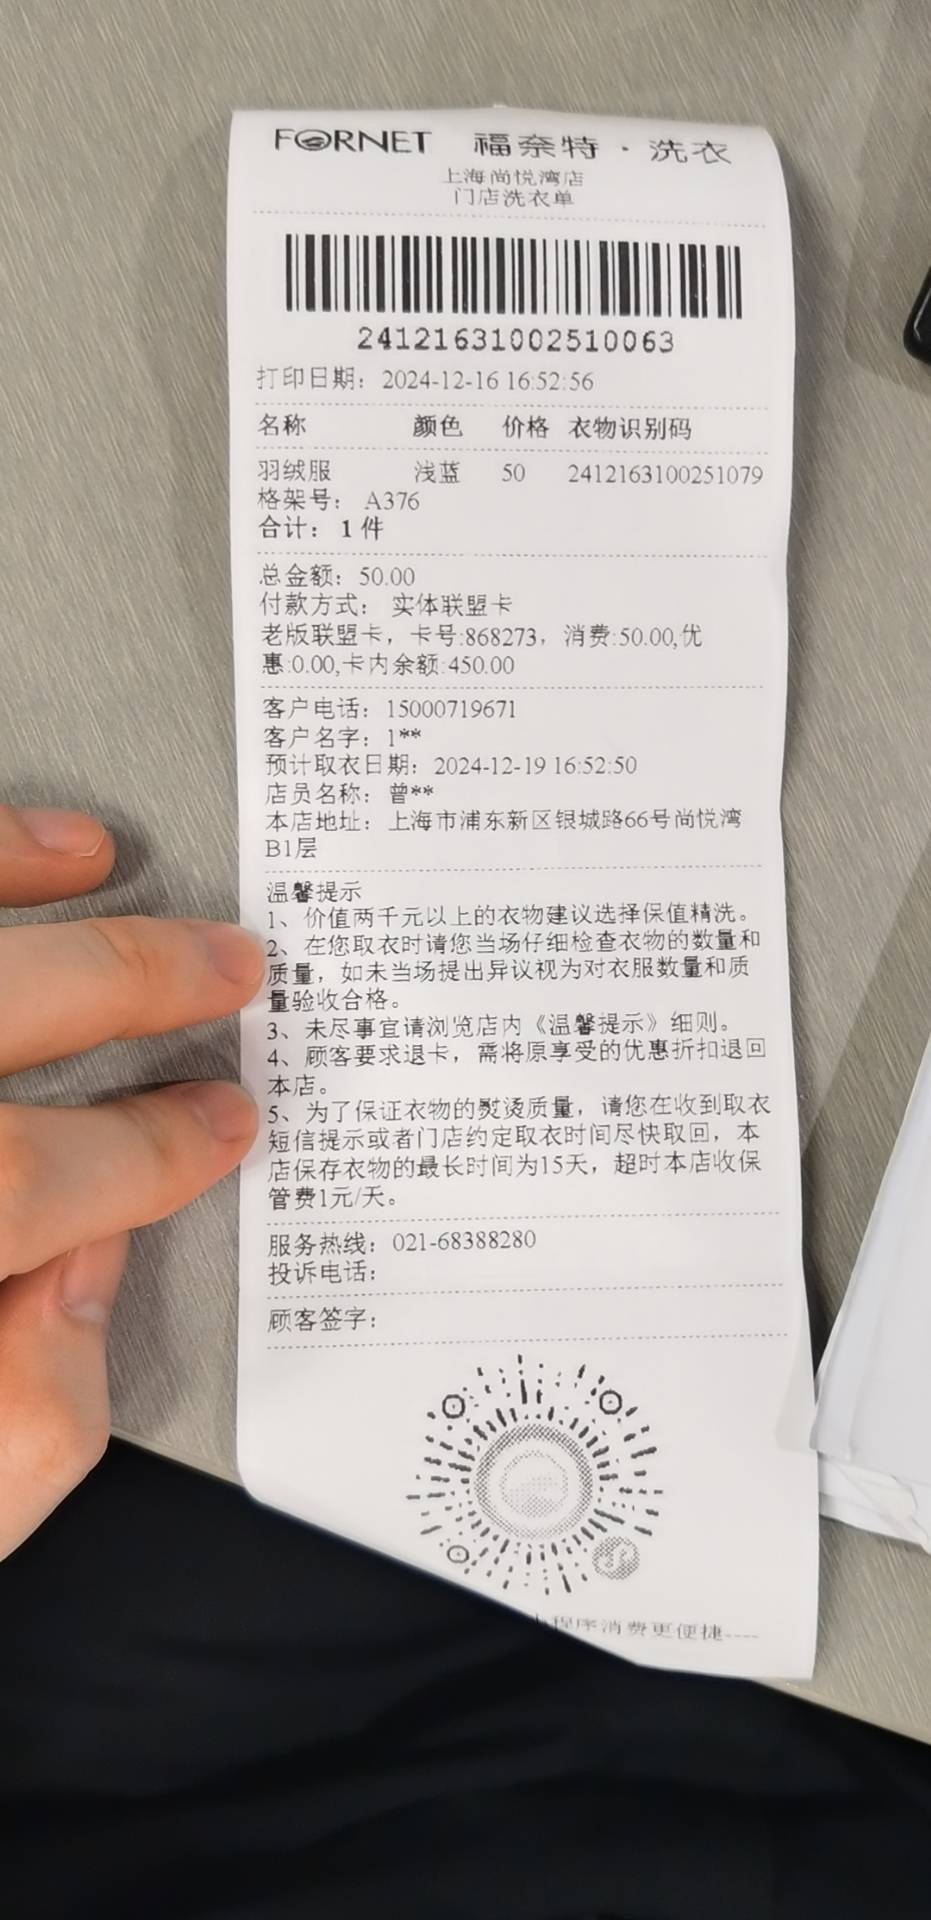 FORNET 福奈特·洗衣
上海尚悦湾店
门店洗衣单
24121631002510063
打印日期：2024-12-16 16:52:56
名称 颜色 价格 衣物识别码
羽绒服 浅蓝 50 2412163100251079
格架号： A376
合计： 1 件
总金额：50.00
付款方式： 实体联盟卡
老版联盟卡，卡号:868273，消费:50.00,优
惠:0.00,卡内余额:450.00
客户电话：15000719671
客户名字：1**
预计取衣日期：2024-12-19 16:52:50
店员名称：曾**
本店地址：上海市浦东新区银城路66号尚悦湾
B1层
温馨提示
1、价值两千元以上的衣物建议选择保值精洗。
2、在您取衣时请您当场仔细检查衣物的数量和
质量，如未当场提出异议视为对衣服数量和质
量验收合格。
3、未尽事宜请浏览店内《温馨提示》细则。
4、顾客要求退卡，需将原享受的优惠折扣退回
本店。
5、为了保证衣物的熨烫质量，请您在收到取衣
短信提示或者门店约定取衣时间尽快取回，本
店保存衣物的最长时间为15天，超时本店收保
管费1元/天。
服务热线：021-68388280
投诉电话：
顾客签字：
程序消费更便捷----